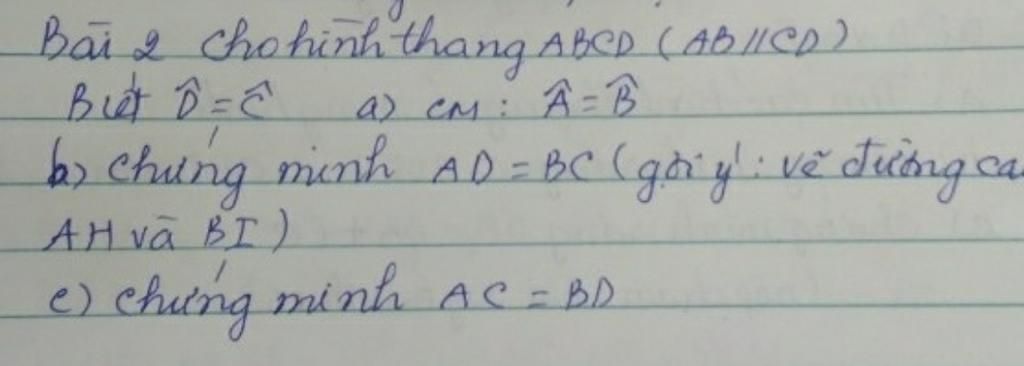 Bài 2 Cho hình thang ABCD (AB//CD)
Biết D̂ = Ĉ a) CM: Â = B̂
b) Chứng minh AD = BC (gợi ý: vẽ đường ca
AH và BI)
c) Chứng minh AC = BD